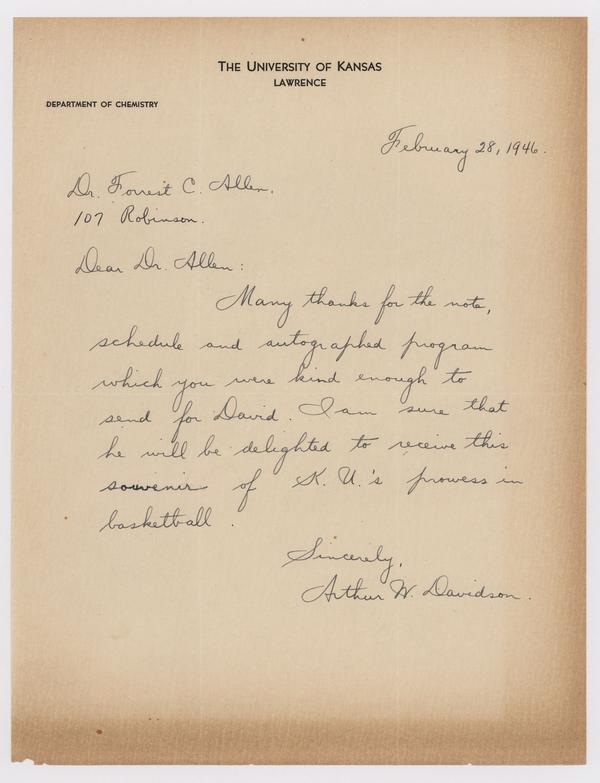 THE UNIVERSITY OF KANSAS
LAWRENCE
DEPARTMENT OF CHEMISTRY
February 28, 1946.
Dr. Forrest C. Allen,
107 Robinson.
Dear Dr. Allen:
Many thanks for the note,
schedule and autographed program
which you were kind enough to
send for David. I am sure that
he will be delighted to receive this
souvenir of K. U.'s prowess in
basketball.
Sincerely,
Arthur W. Davidson.